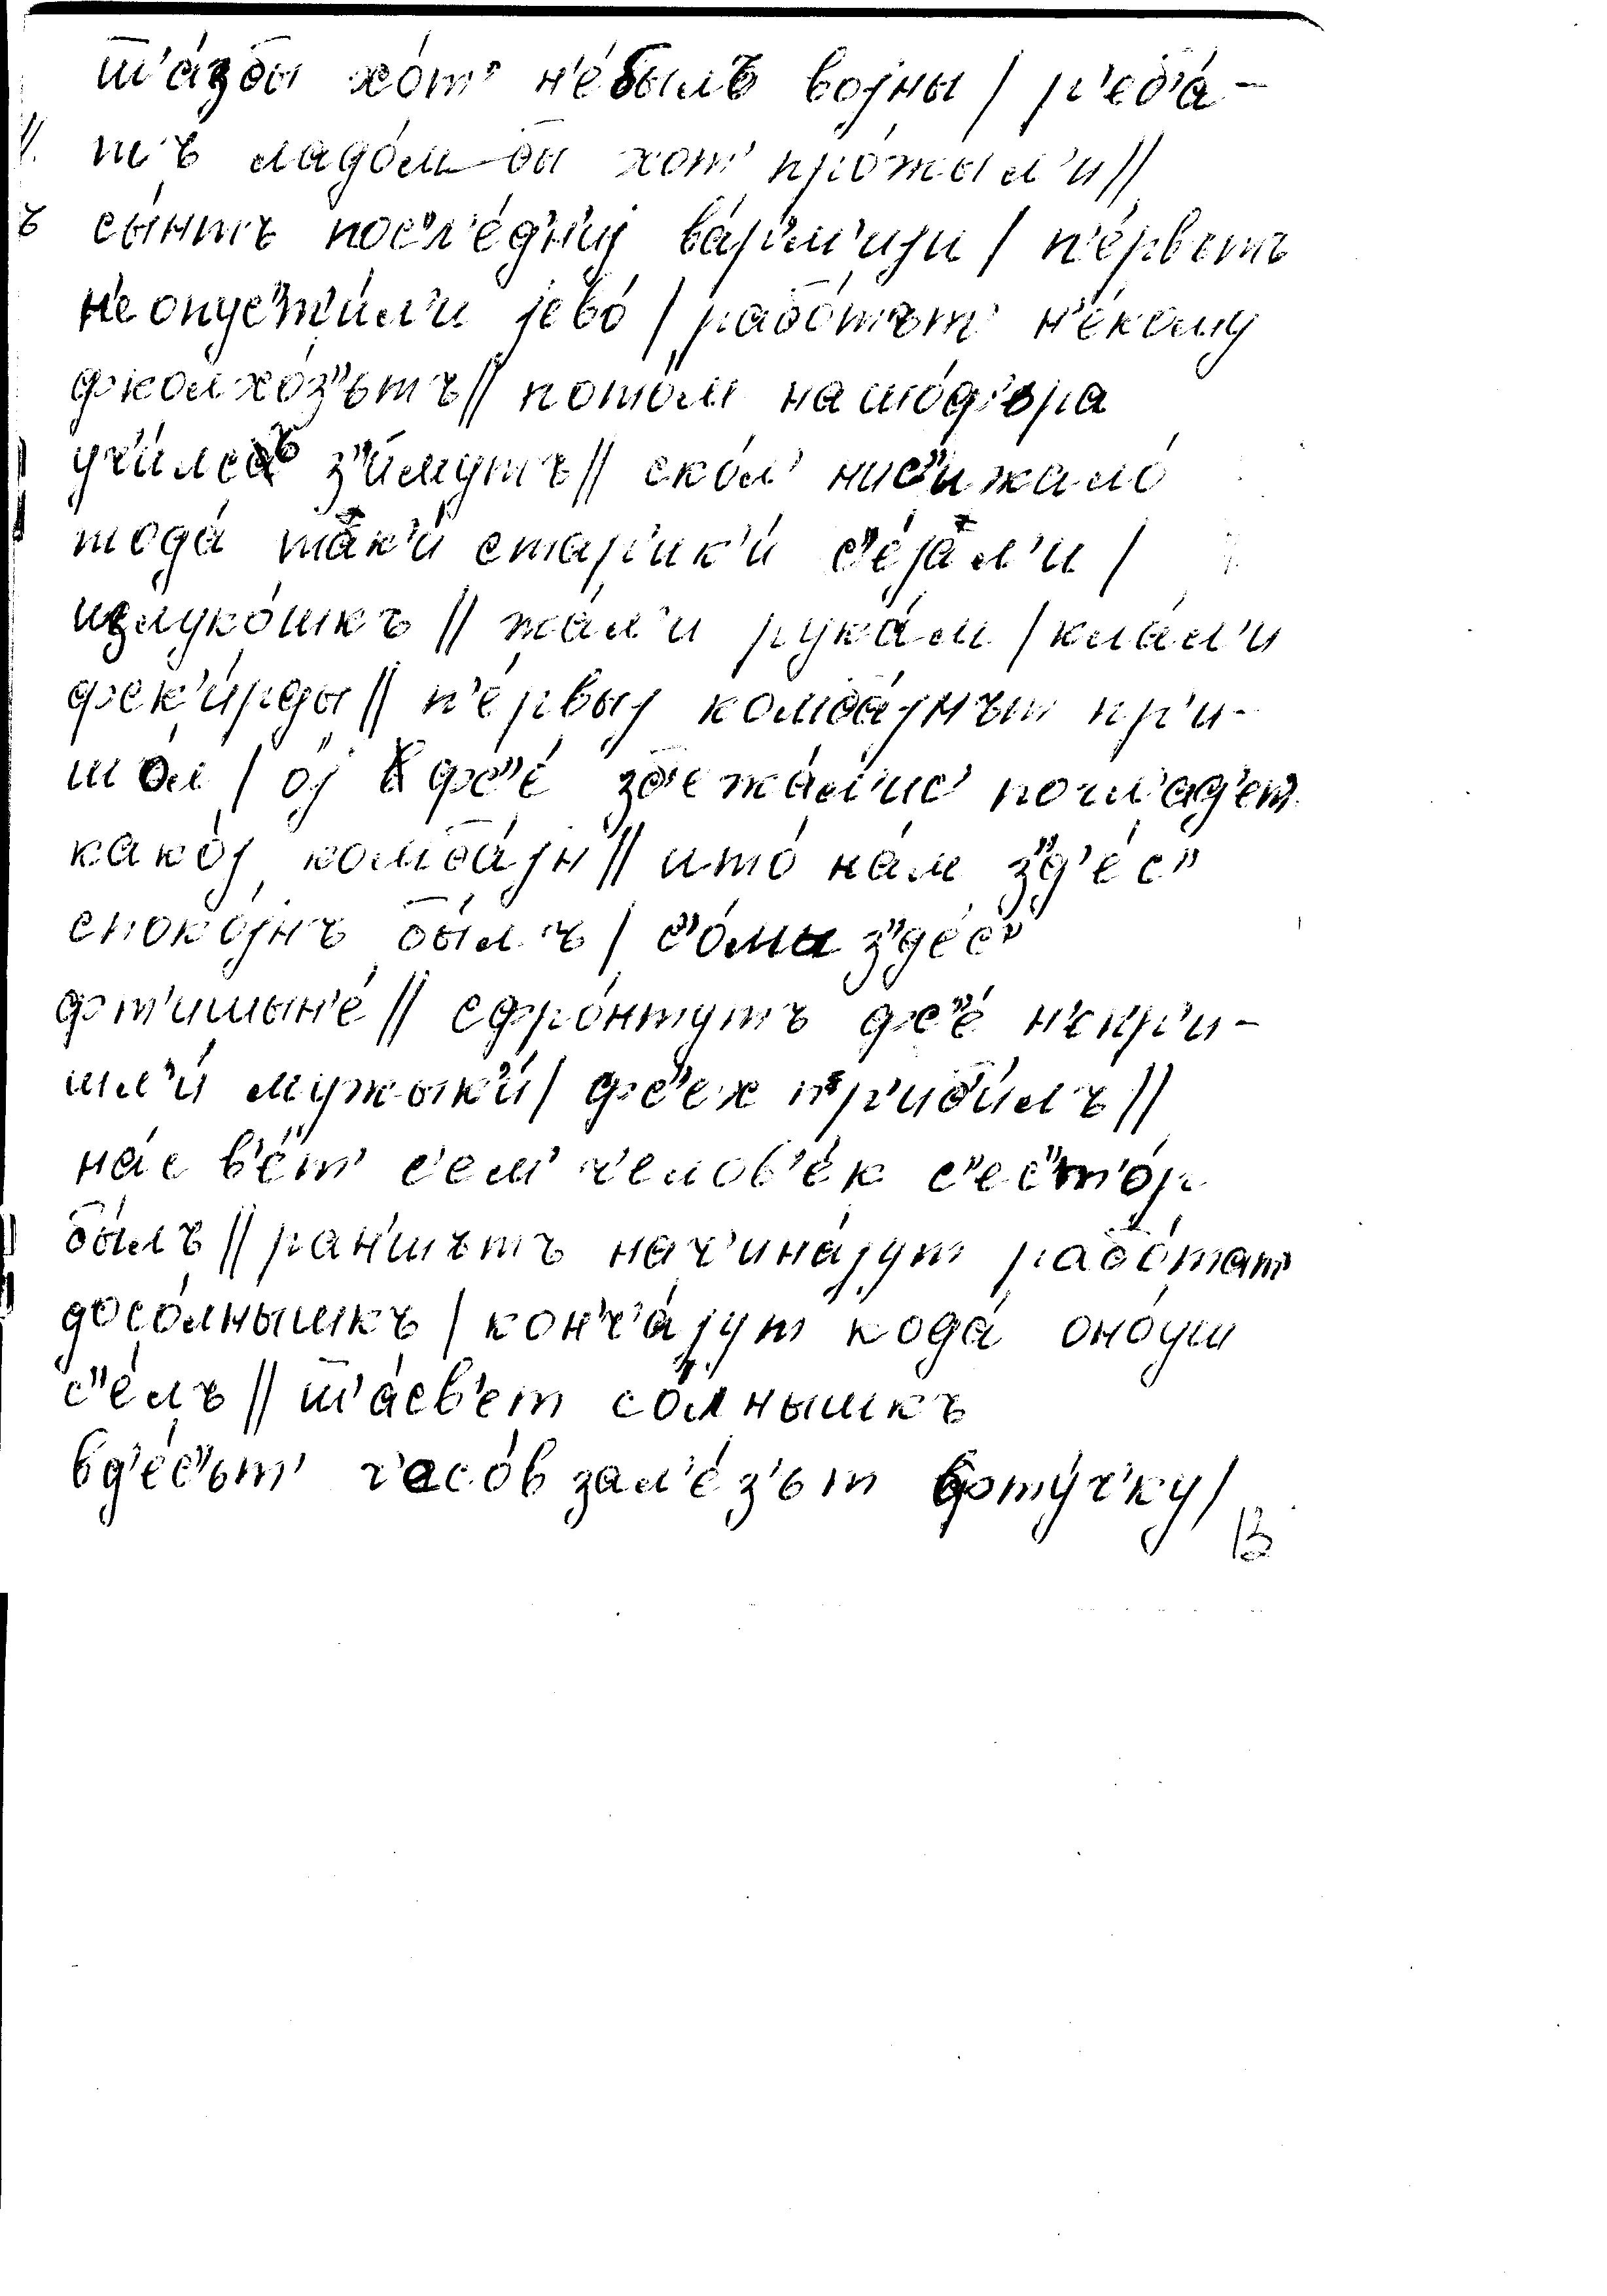 т'а́збы хо́т' н'е́былъ војны́ / р'еб'а́-
тъ ладо́м бы хот' про́жыл'и //
сы́нтъ посл'е́д'н'иј ва́рм'ији / п'е́рвътъ
н'е опус"т'и́л'и јево́ / рабо́тът' н'е́кому
фколхо́з"ътъ // пото́м нашо́ф'ора
уч'и́лсъ з"и́мутъ // ско́л' нис"ижало́
тода́ та́к'и стар'ик'и́ с"е́јал'и /
излуко́шкъ // жа́л'и рука́м / кла́л'и
фск'и́рды // п'е́рвыј комба́јнът пр'и-
шо́л / о́ј фс"е́ зб'ежа́л'ис' погл'ад'ет'
како́ј комба́јн // што́ на́м з"д'е́с"
споко́јнъ бы́лъ / с"о́мы з"д'е́с"
фт'ишын'е́ // сфро́нтутъ фс"е́ н'епр'и-
шл'и́ мужык'и́ / фс"ех пр'иби́лъ //
на́с в'е́т' с'ем' ч'елов'е́к с"ес"т'о́р
бы́лъ // ран'шътъ нач'ина́јут рабо́тат'
досо́лнышкъ / конч'а́јут кода́ оно́уш
с"е́лъ // т'а́св'ет со́лнышкъ
вд'е́с"ът' ч'асо́в зал'е́з'ът фту́ч'ку /
13